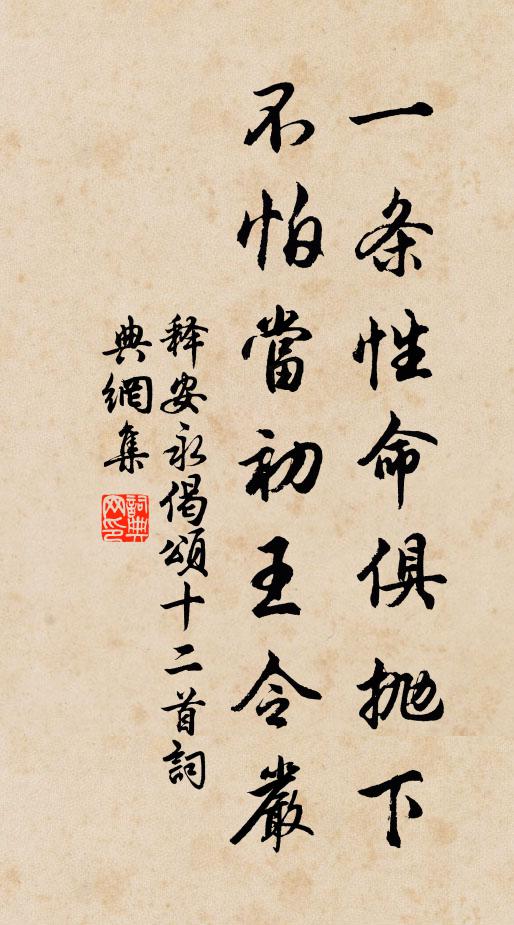 一条性命俱抛下
不怕當初王令嚴
释安永偈頌十二首詞
典網集
詞典
网印